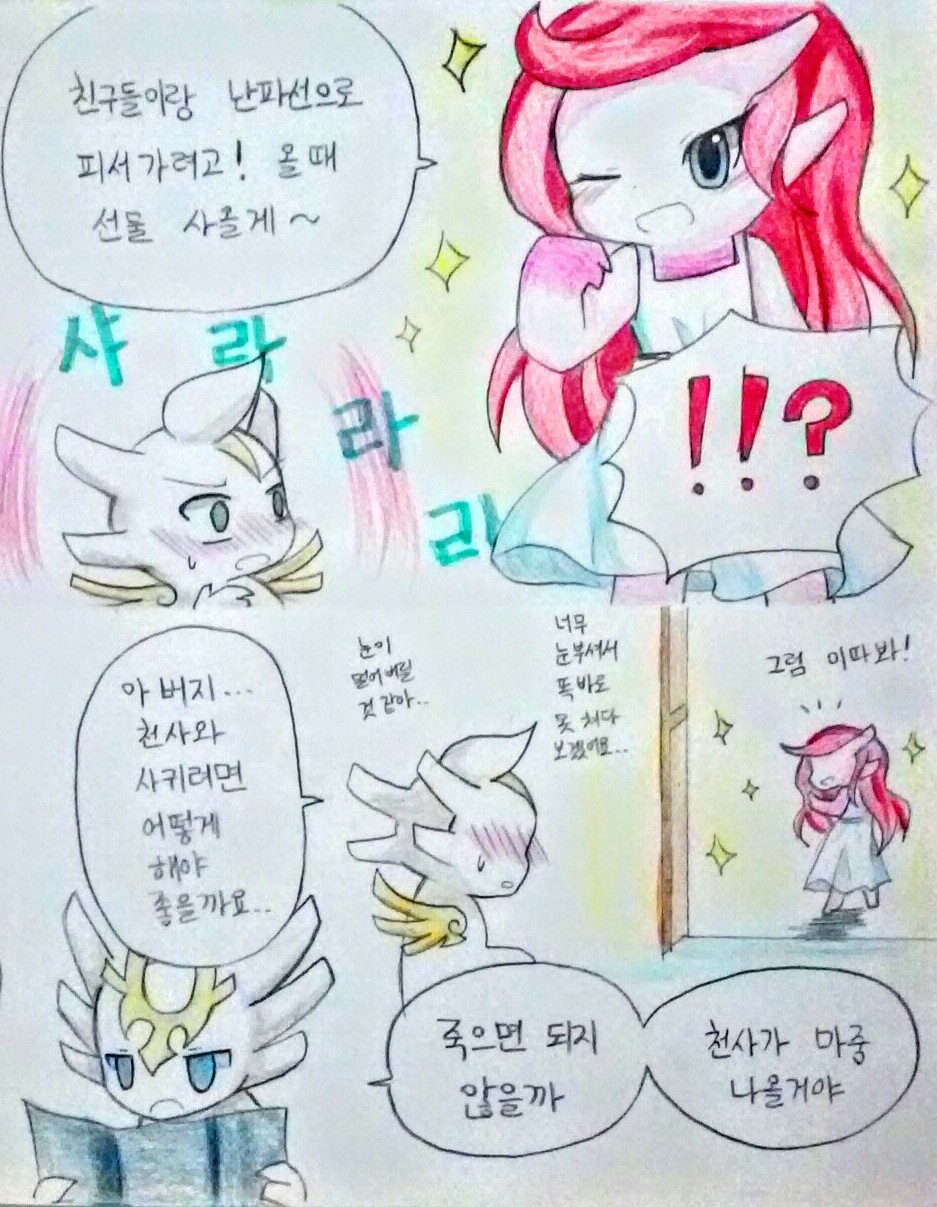 친구들이랑 난파선으로
피서가려고! 올때
선물 사올게~
샤 라
라
라
!!?
그럼 이따봐!
너무
눈부셔서
똑바로
못 쳐다
보겠어요...
눈이
멀어버릴
것 같아..
아버지...
천사와
사귀려면
어떻게
해야
좋을까요...
죽으면 되지
않을까
천사가 마중
나올거야